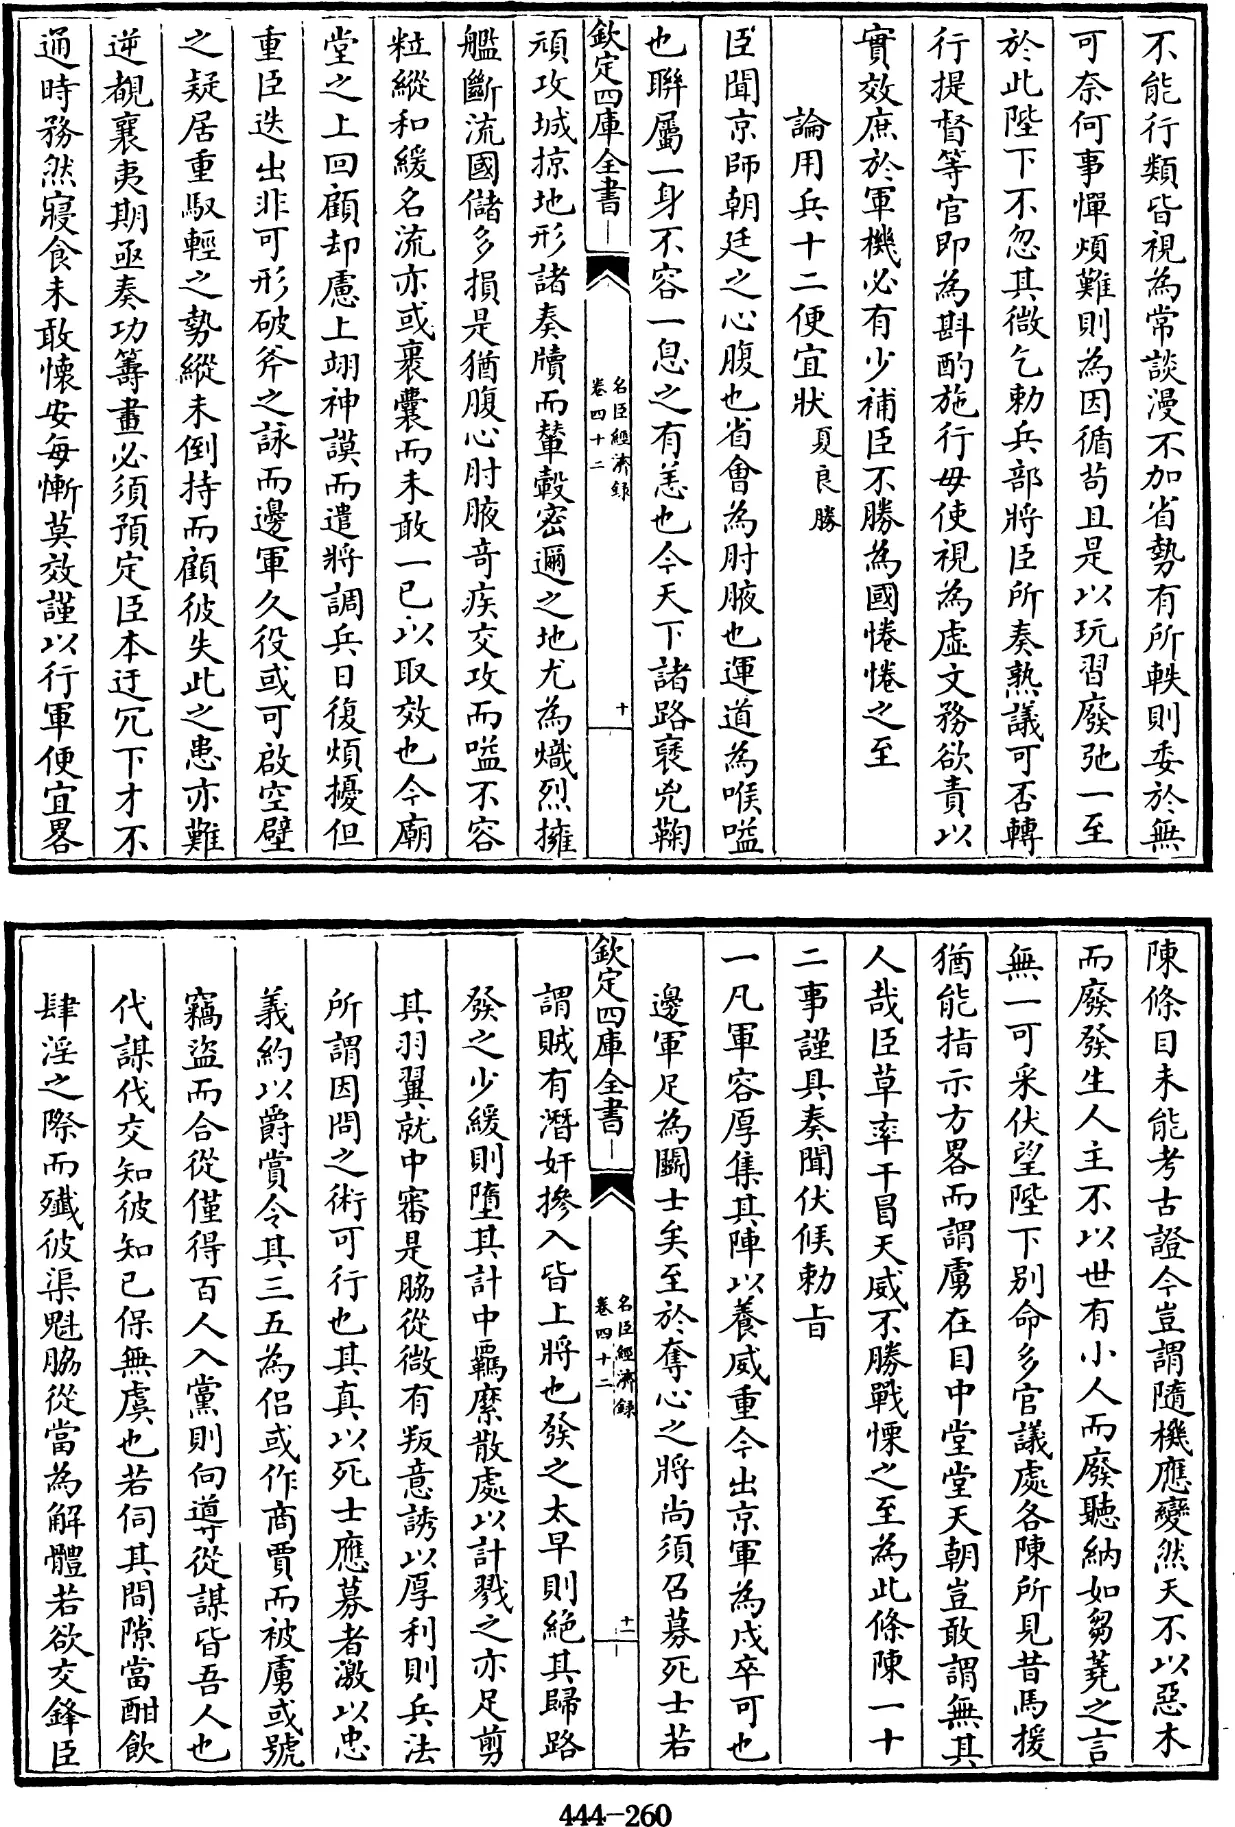 不能行類皆視為常談漫不加省勢有所軼則委於無
可奈何事憚煩難則為因循苟且是以玩習廢弛一至
於此陛下不忽其微乞勅兵部將臣所奏熟議可否轉
行提督等官即為斟酌施行毋使視為虛文務欲責以
實效庶於軍機必有少補臣不勝為國惓惓之至
論用兵十二便宜狀 夏良勝
臣聞京師朝廷之心腹也省會為肘腋也運道為喉嗌
也聯屬一身不容一息之有恙也今天下諸路褻兇鞠
欽定四庫全書
名臣經濟錄
卷四十二
十
頑攻城掠地形諸奏牘而輦轂密邇之地尤為熾烈擁
艦斷流國儲多損是猶腹心肘腋竒疾交攻而嗌不容
粒縱和緩名流亦或裹囊而未敢一已以取效也今廟
堂之上回顧却慮上翊神謨而遣將調兵日復煩擾但
重臣迭出非可形破斧之詠而邊軍久役或可啟空壁
之疑居重馭輕之勢縱未倒持而顧彼失此之患亦難
逆覩襄夷期亟奏功籌畫必須預定臣本迂冗下才不
通時務然寢食未敢懷安每慚莫效謹以行軍便宜畧
陳條目未能考古證今豈謂隨機應變然天不以惡木
而廢發生人主不以世有小人而廢聽納如芻蕘之言
無一可采伏望陛下别命多官議處各陳所見昔馬援
猶能指示方畧而謂虜在目中堂堂天朝豈敢謂無其
人哉臣草率干冒天威不勝戰慄之至為此條陳一十
二事謹具奏聞伏候勅旨
一凡軍容厚集其陣以養威重今出京軍為戍卒可也
邊軍足為鬬士矣至於奪心之將尚須召募死士若
欽定四庫全書
名臣經濟錄
卷四十二
十一
謂賊有潛奸摻入皆上將也發之太早則絶其歸路
發之少緩則墮其計中羈縻散處以計戮之亦足剪
其羽翼就中審是脇從微有叛意誘以厚利則兵法
所謂因間之術可行也其真以死士應募者激以忠
義約以爵賞令其三五為侣或作商賈而被虜或號
竊盜而合從僅得百人入黨則向導從謀皆吾人也
代謀伐交知彼知已保無虞也若伺其間隙當酣飲
肆淫之際而殲彼渠魁脇從當為解體若欲交鋒臣
444-260